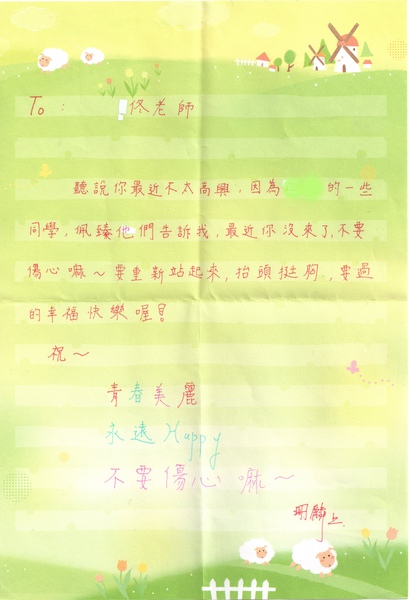 To: 佟老師
聽說你最近不太高興,因為 的一些
同學,佩臻他們告訴我,最近你沒來了,不要
傷心嘛~要重新站起來,抬頭挺胸,要過
的幸福快樂喔!
祝~
青春美麗
永遠Happy
不要傷心嘛~
珊麟上